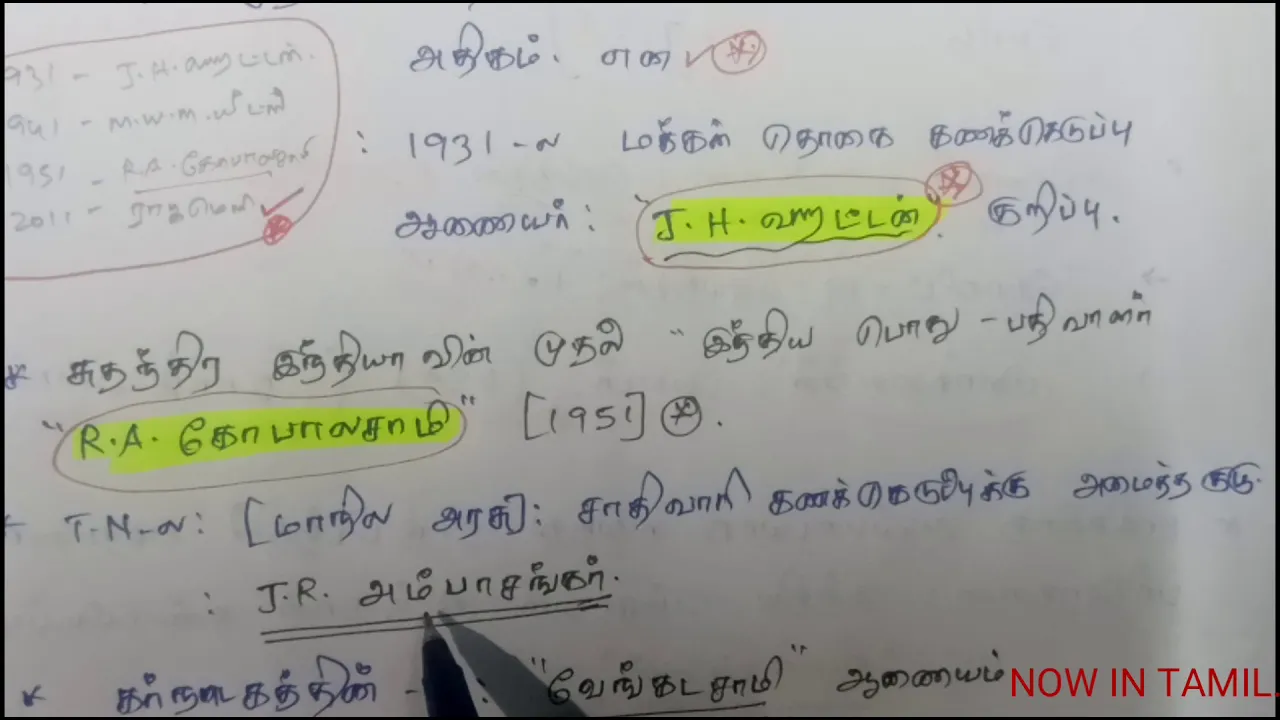 அதிகம். என
1931 - J.H. ஹட்டன்.
1941 - M.W.M. யீட்ஸ்
1951 - R.A. கோபாலசாமி
2011 -
: 1931-ல மக்கள் தொகை கணக்கெடுப்பு
ஆணையர்: "J.H. ஹட்டன்". குறிப்பு.
* சுதந்திர இந்தியாவின் முதல் "இந்திய பொது - பதிவாளர்
"R.A. கோபாலசாமி" [1951]
T.N-ல: [மாநில அரசு]: சாதிவாரி கணக்கெடுப்புக்கு அமைத்த குழு.
: J.R. அம்பாசங்கர்.
* கர்நாடகத்தின் - : "வேங்கடசாமி" ஆணையம்
NOW IN TAMIL.